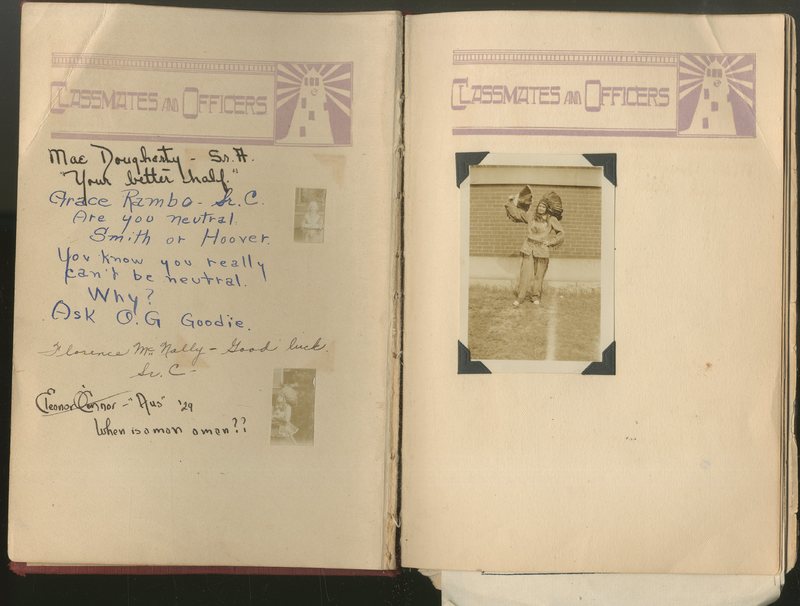 CLASSMATES AND OFFICERS
Mae Dougherty - Sr. A.
"Your better half."
Grace Rambo - Sr. C.
Are you neutral.
Smith or Hoover.
You know you really
can't be neutral.
Why?
Ask O.G Goodie.
Florence McNally - Good luck.
Sr. C -
Eleanor O'Connor - "Aus" '29
When is a man a man??
CLASSMATES AND OFFICERS